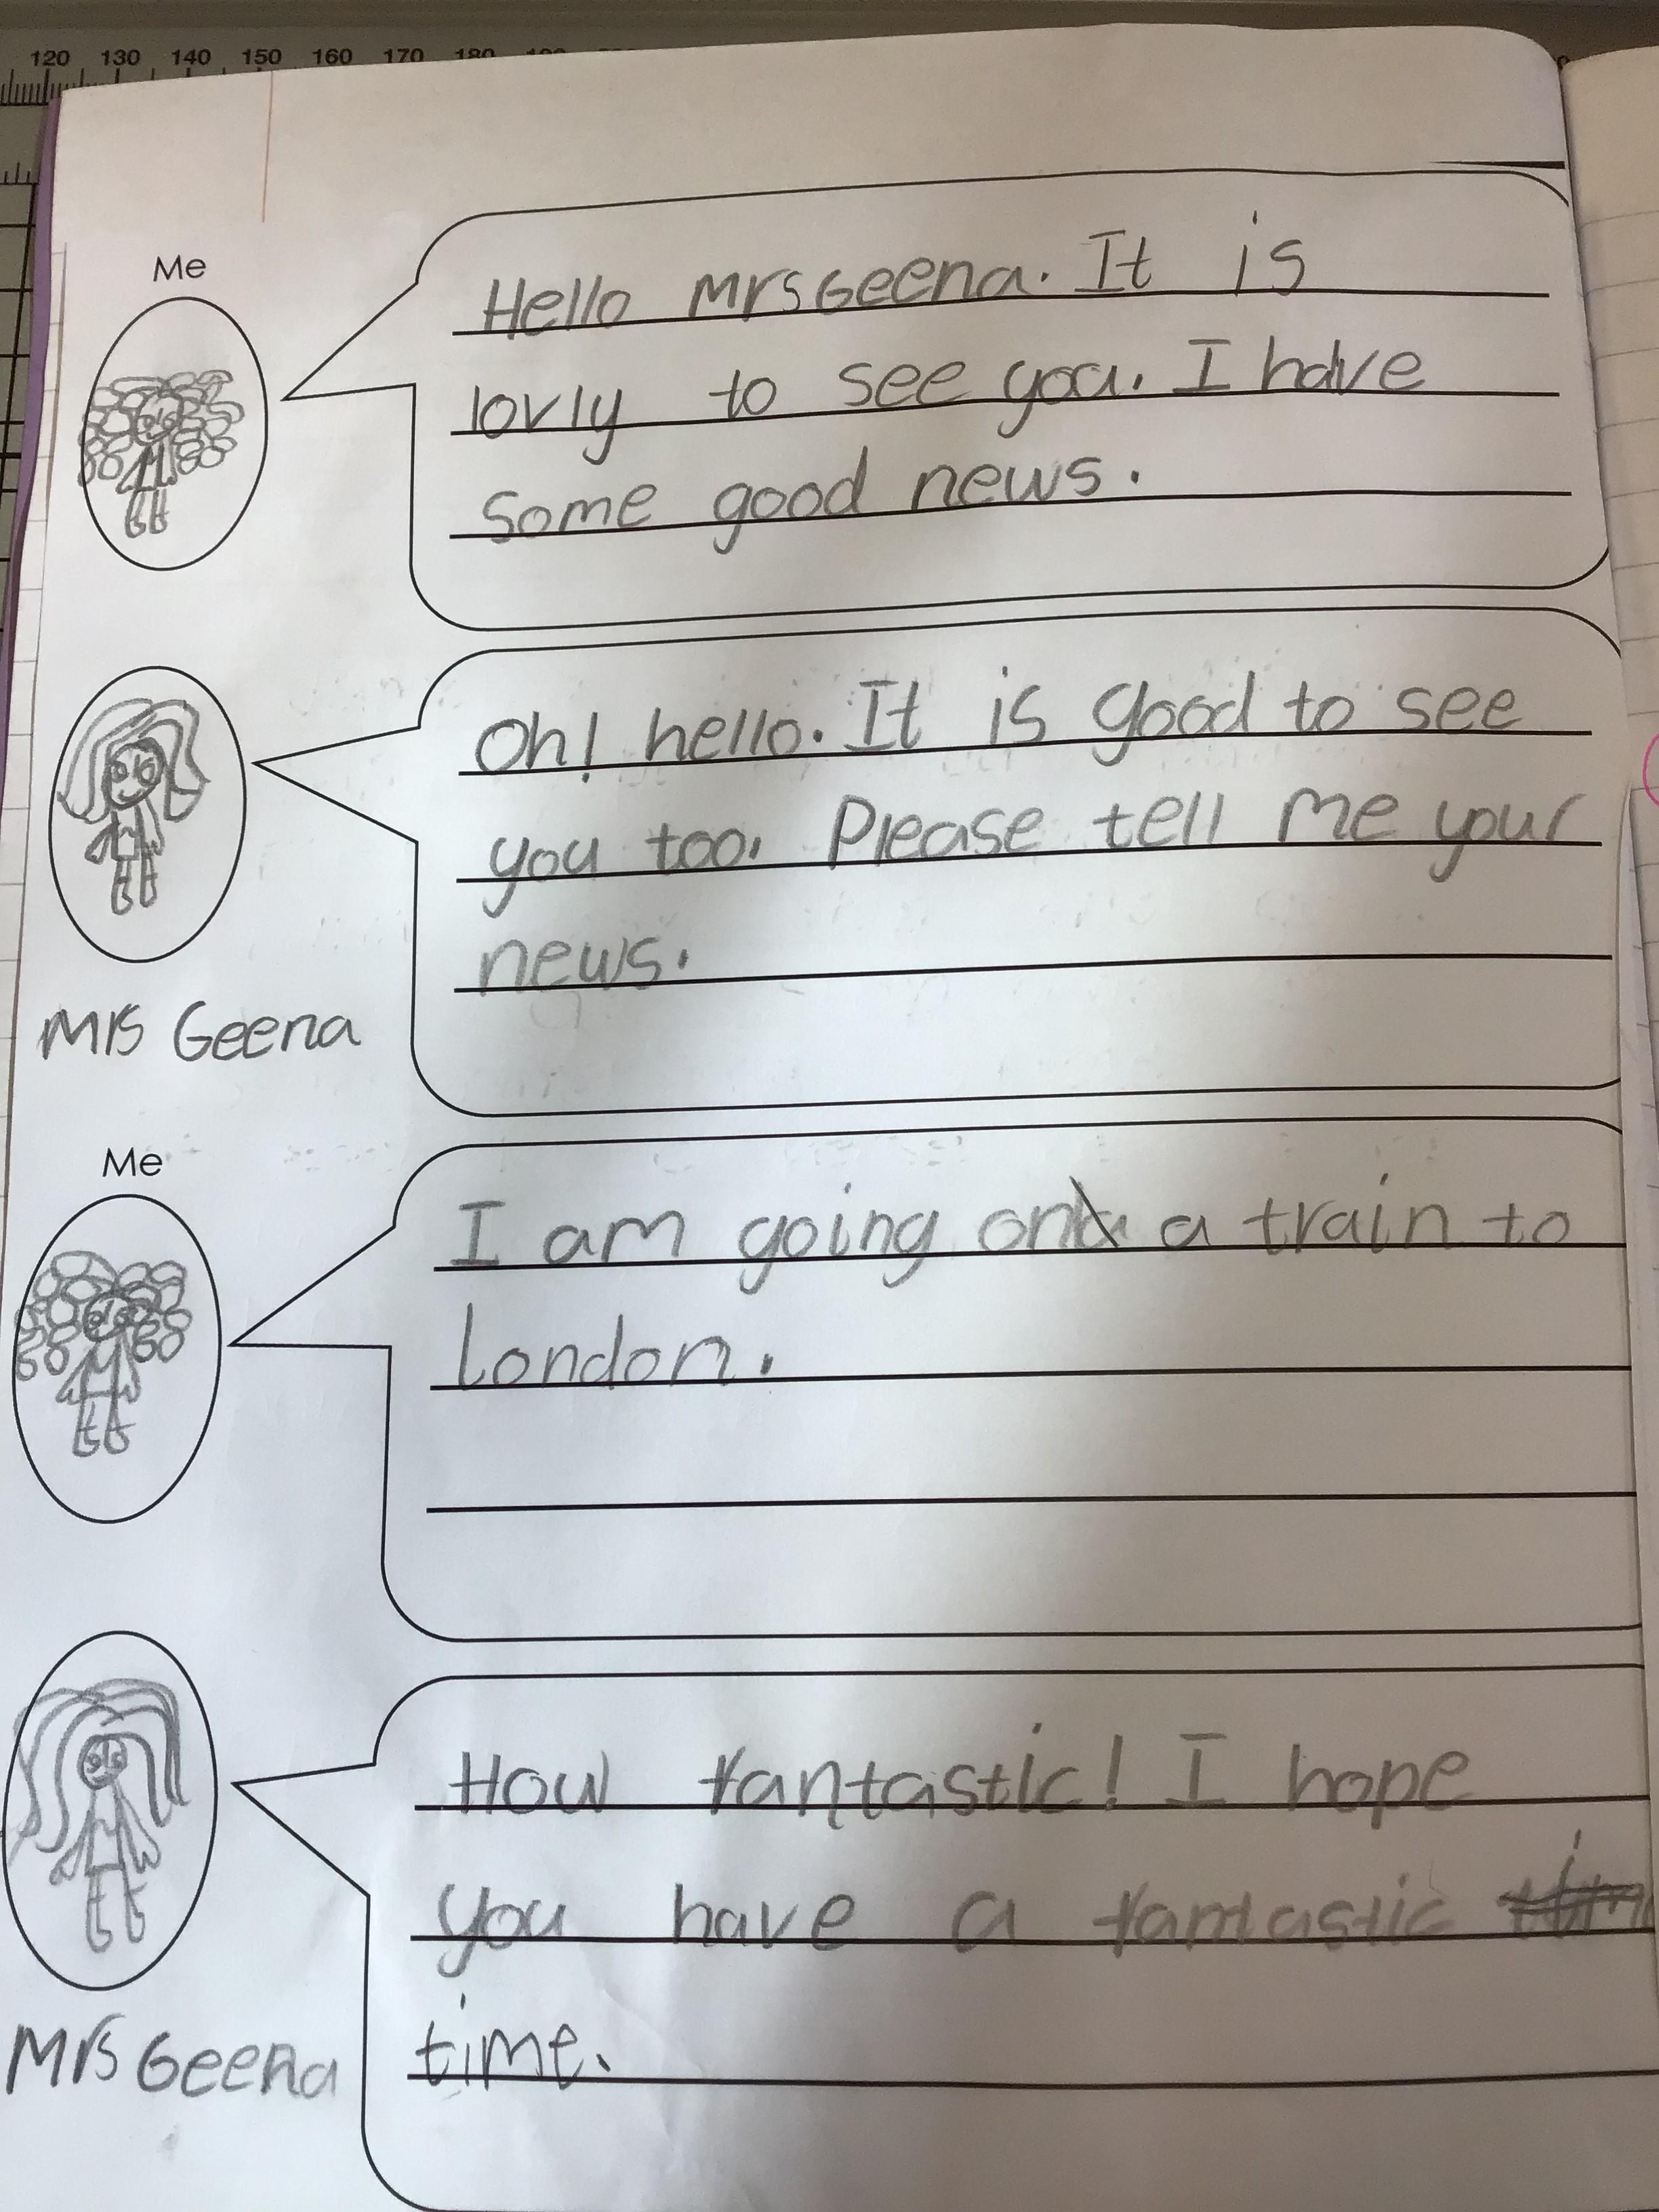 120 130 140 150 160 170 180
Me
Hello Mrs Geena. It is
lovly to see you. I have
some good news.
Oh! hello. It is good to see
you too. Please tell me your
news.
Mrs Geena
Me
I am going on a train to
London.
How fantastic! I hope
you have a fantastic
time.
Mrs Geena